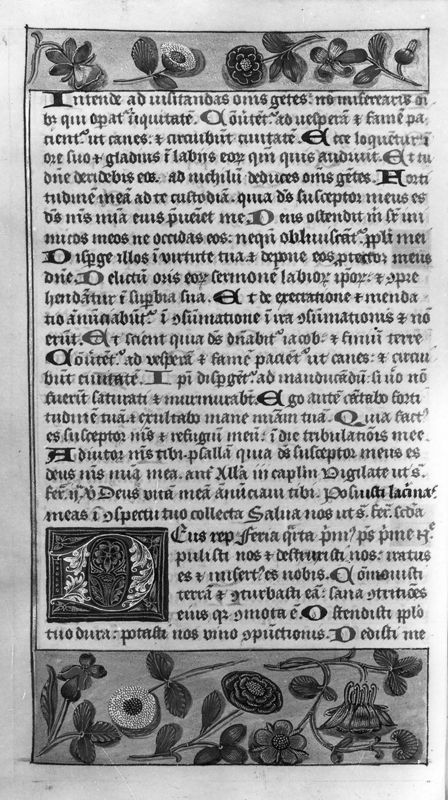 Intende ad visitandas om̄s gētes: nō miserearis oı̄
bꝰ qui opāt᷑ iniquitatē. Cōuētēt᷑ ad vesperā et famē pa
cient᷑ ut canes: et circuibūt civitatē. Ecce loquent᷑ ı̄
ore suo et gladius ı̄ labijs eoꝝ qm̄ quis audivit. Et tu
dn̄e deridebis eos. ad nichilū deduces om̄s gētes. Forti
tudinē meā ad te custodiā. quia dꝰs susceptor meus es
dꝰs mꝰs mīa eiꝰ p̄veīet me. Deus ostendit m̄ sr̄ ini
micos meos ne occidas eos: nequn̄ obliviscāt᷑ ppl̄i mei
Disp̄ge illos ı̄ virtute tua et depone eos ꝓtector meus
dn̄e. Delictū oris eoꝝ sermonē labioꝝ ip̄oꝝ: et ꝯpre
hendant᷑ ı̄ sup̄bia sua. Et de execratione et menda
tio ānūciabūt᷑ ı̄ ꝯsūmatione ı̄ ira ꝯsūmationis et nō
erūt. Et scient quia dꝰs dn̄abit᷑ iacob: et finiū terre
Cōuētēt᷑ ad vesperā et famē paciēt᷑ ut canes: et circui
būt civitatē. Ipı̄ disp̄gēt᷑ ad manducādū: si v̄o nō
fuerīt saturati et murmurabūt. Ego autē cātabo forti
tudinē tuā: et exultabo mane mīam tuā. Quia factꝰ
es susceptor mꝰs et refugiū meū: ı̄ die tribulatiōis mee
Adiutor mꝰs tibi psallā quia dꝰs susceptor meus es
deus mꝰs mīa mea. ant̄ All̄a in capl̄m Vigilate ut sꝰ.
Deus vitā meā ānūciavi tibi. Posuisti lac̄mas
meas ı̄ ꝯspectu tuo collecta Salva nos ut sꝰ. fer̄ sc̄da
Deus rep Feria q̄rta
pulisti nos et destruxisti nos: iratus
es et misertꝰ es nobis. Cōmovisti
terrā et ꝯturbasti eā: sana ꝯtritiōes
eius qꝛ ꝯmota ē. Ostendisti ppl̄o
tuo dura: potasti nos vino ꝯpūctionis. Dedisti me